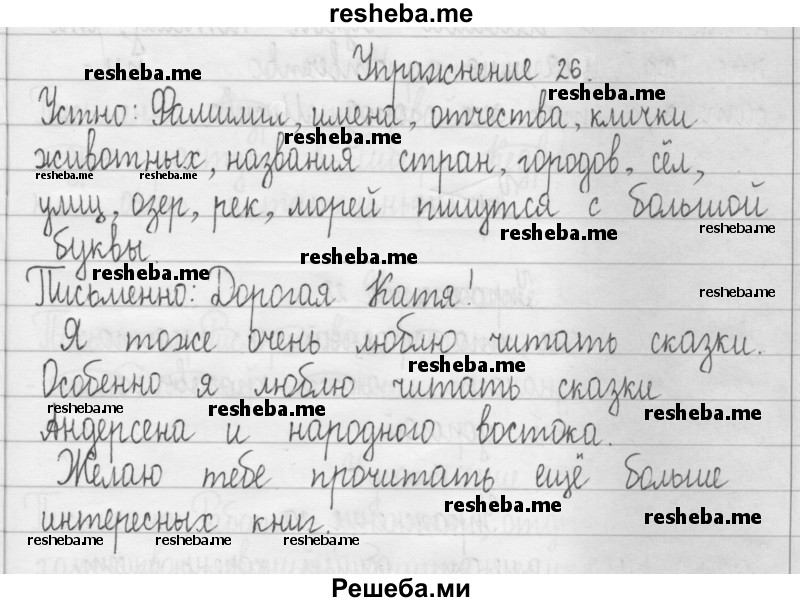 resheba.me
Упражнение 26.
resheba.me
resheba.me
Устно: Фамилии, имена, отчества, клички
resheba.me
животных, названия стран, городов, сёл,
resheba.me resheba.me
улиц, озер, рек, морей пишутся с большой
resheba.me resheba.me
буквы.
resheba.me
resheba.me
Письменно: Дорогая Катя!
resheba.me
Я тоже очень люблю читать сказки.
resheba.me
Особенно я люблю читать сказки
resheba.me resheba.me resheba.me
Андерсена и народного востока.
Желаю тебе прочитать ещё больше
resheba.me
интересных книг.
resheba.me
resheba.me resheba.me resheba.me
Решеба.ми